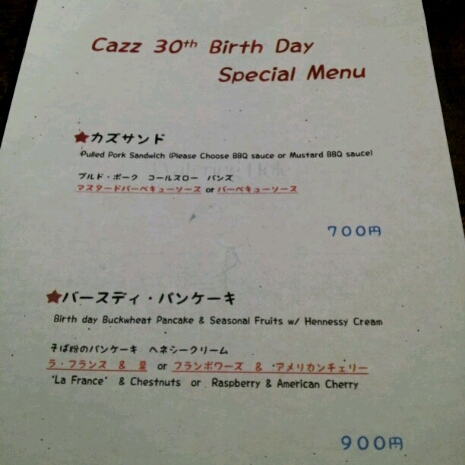 Cazz 30th Birth Day
Special Menu
★カズサンド
Pulled Pork Sandwich (Please Choose BBQ sauce or Mustard BBQ sauce)
プルド・ポーク コールスロー バンズ
マスタードバーベキューソース or バーベキューソース
700円
★バースディ・パンケーキ
Birth day Buckwheat Pancake & Seasonal Fruits w/ Hennessy Cream
そば粉のパンケーキ ヘネシークリーム
ラ・フランス & 栗 or フランボワーズ & アメリカンチェリー
'La France' & Chestnuts or Raspberry & American Cherry
900円